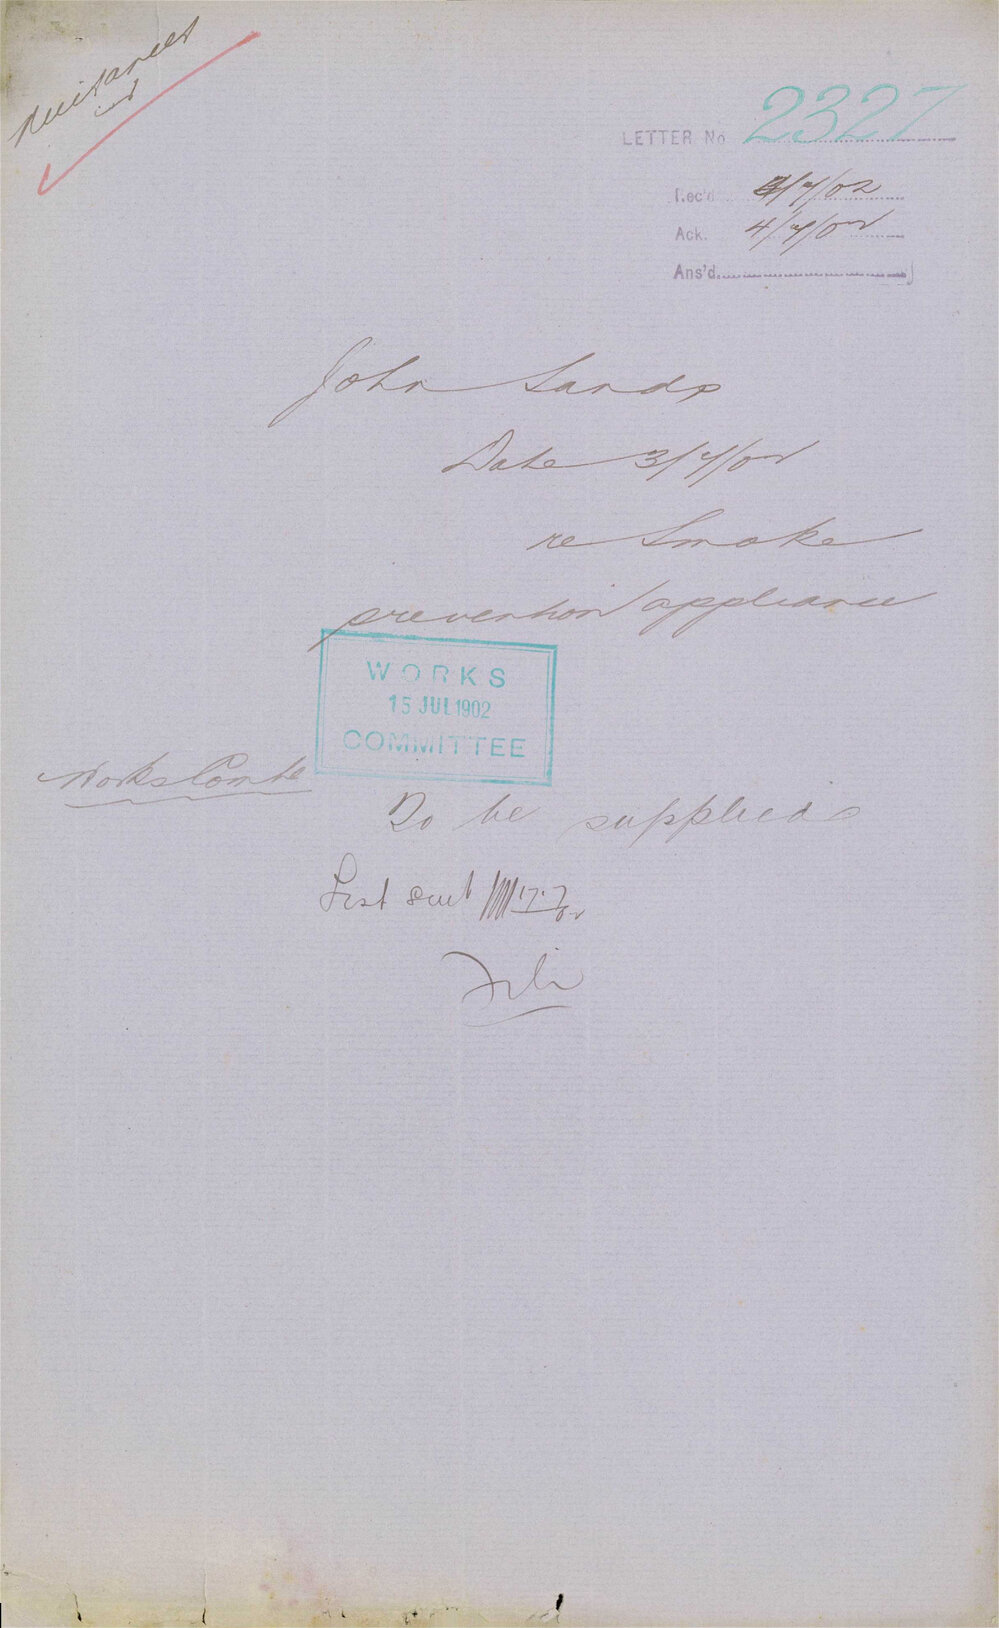 Nuisances
ind
LETTER No 2327
Rec'd 4/7/02
Ack. 4/7/02
Ans'd
John Sands
Date 3/7/02
re Smoke
prevention appliance
WORKS
15 JUL 1902
COMMITTEE
Works Comte
To be supplied
List sent 17.7.02
File